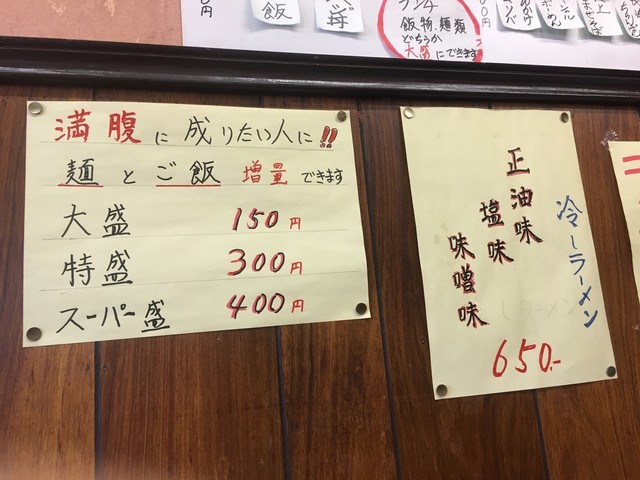 円
飯
ランチ
飯物、麺類
どちらか
大盛にできます
満腹に成りたい人に!!
麺とご飯 増量できます
大盛 150円
特盛 300円
スーパー盛 400円
冷しラーメン
正油味
塩味
味噌味
650.-